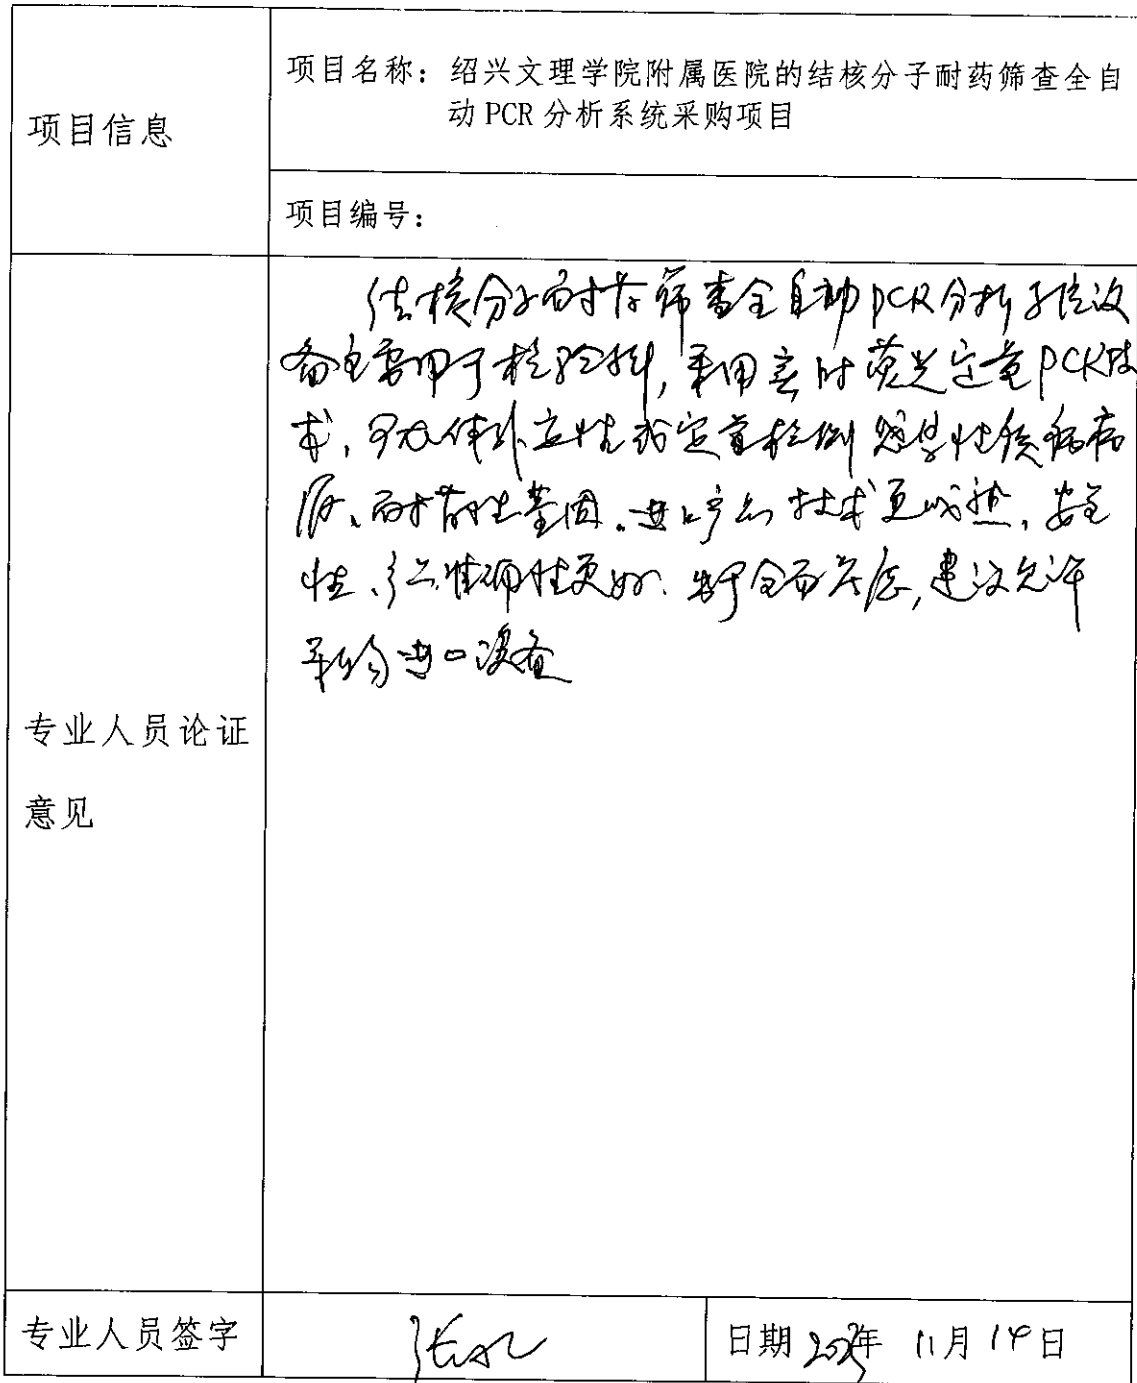 项目信息
项目名称：绍兴文理学院附属医院的结核分子耐药筛查全自
动 PCR 分析系统采购项目
项目编号：
专业人员论证
意见
结核分子耐药筛查全自动PCR分析系统设
备主要用于检验科，采用实时荧光定量PCR技
术，可在体外定性或定量检测感染性疾病病
原、耐药性基因．进口产品技术更成熟，安全
性、准确性更好．出于全面考虑，建议允许
采购进口设备
专业人员签字
张
日期 年 11月14日